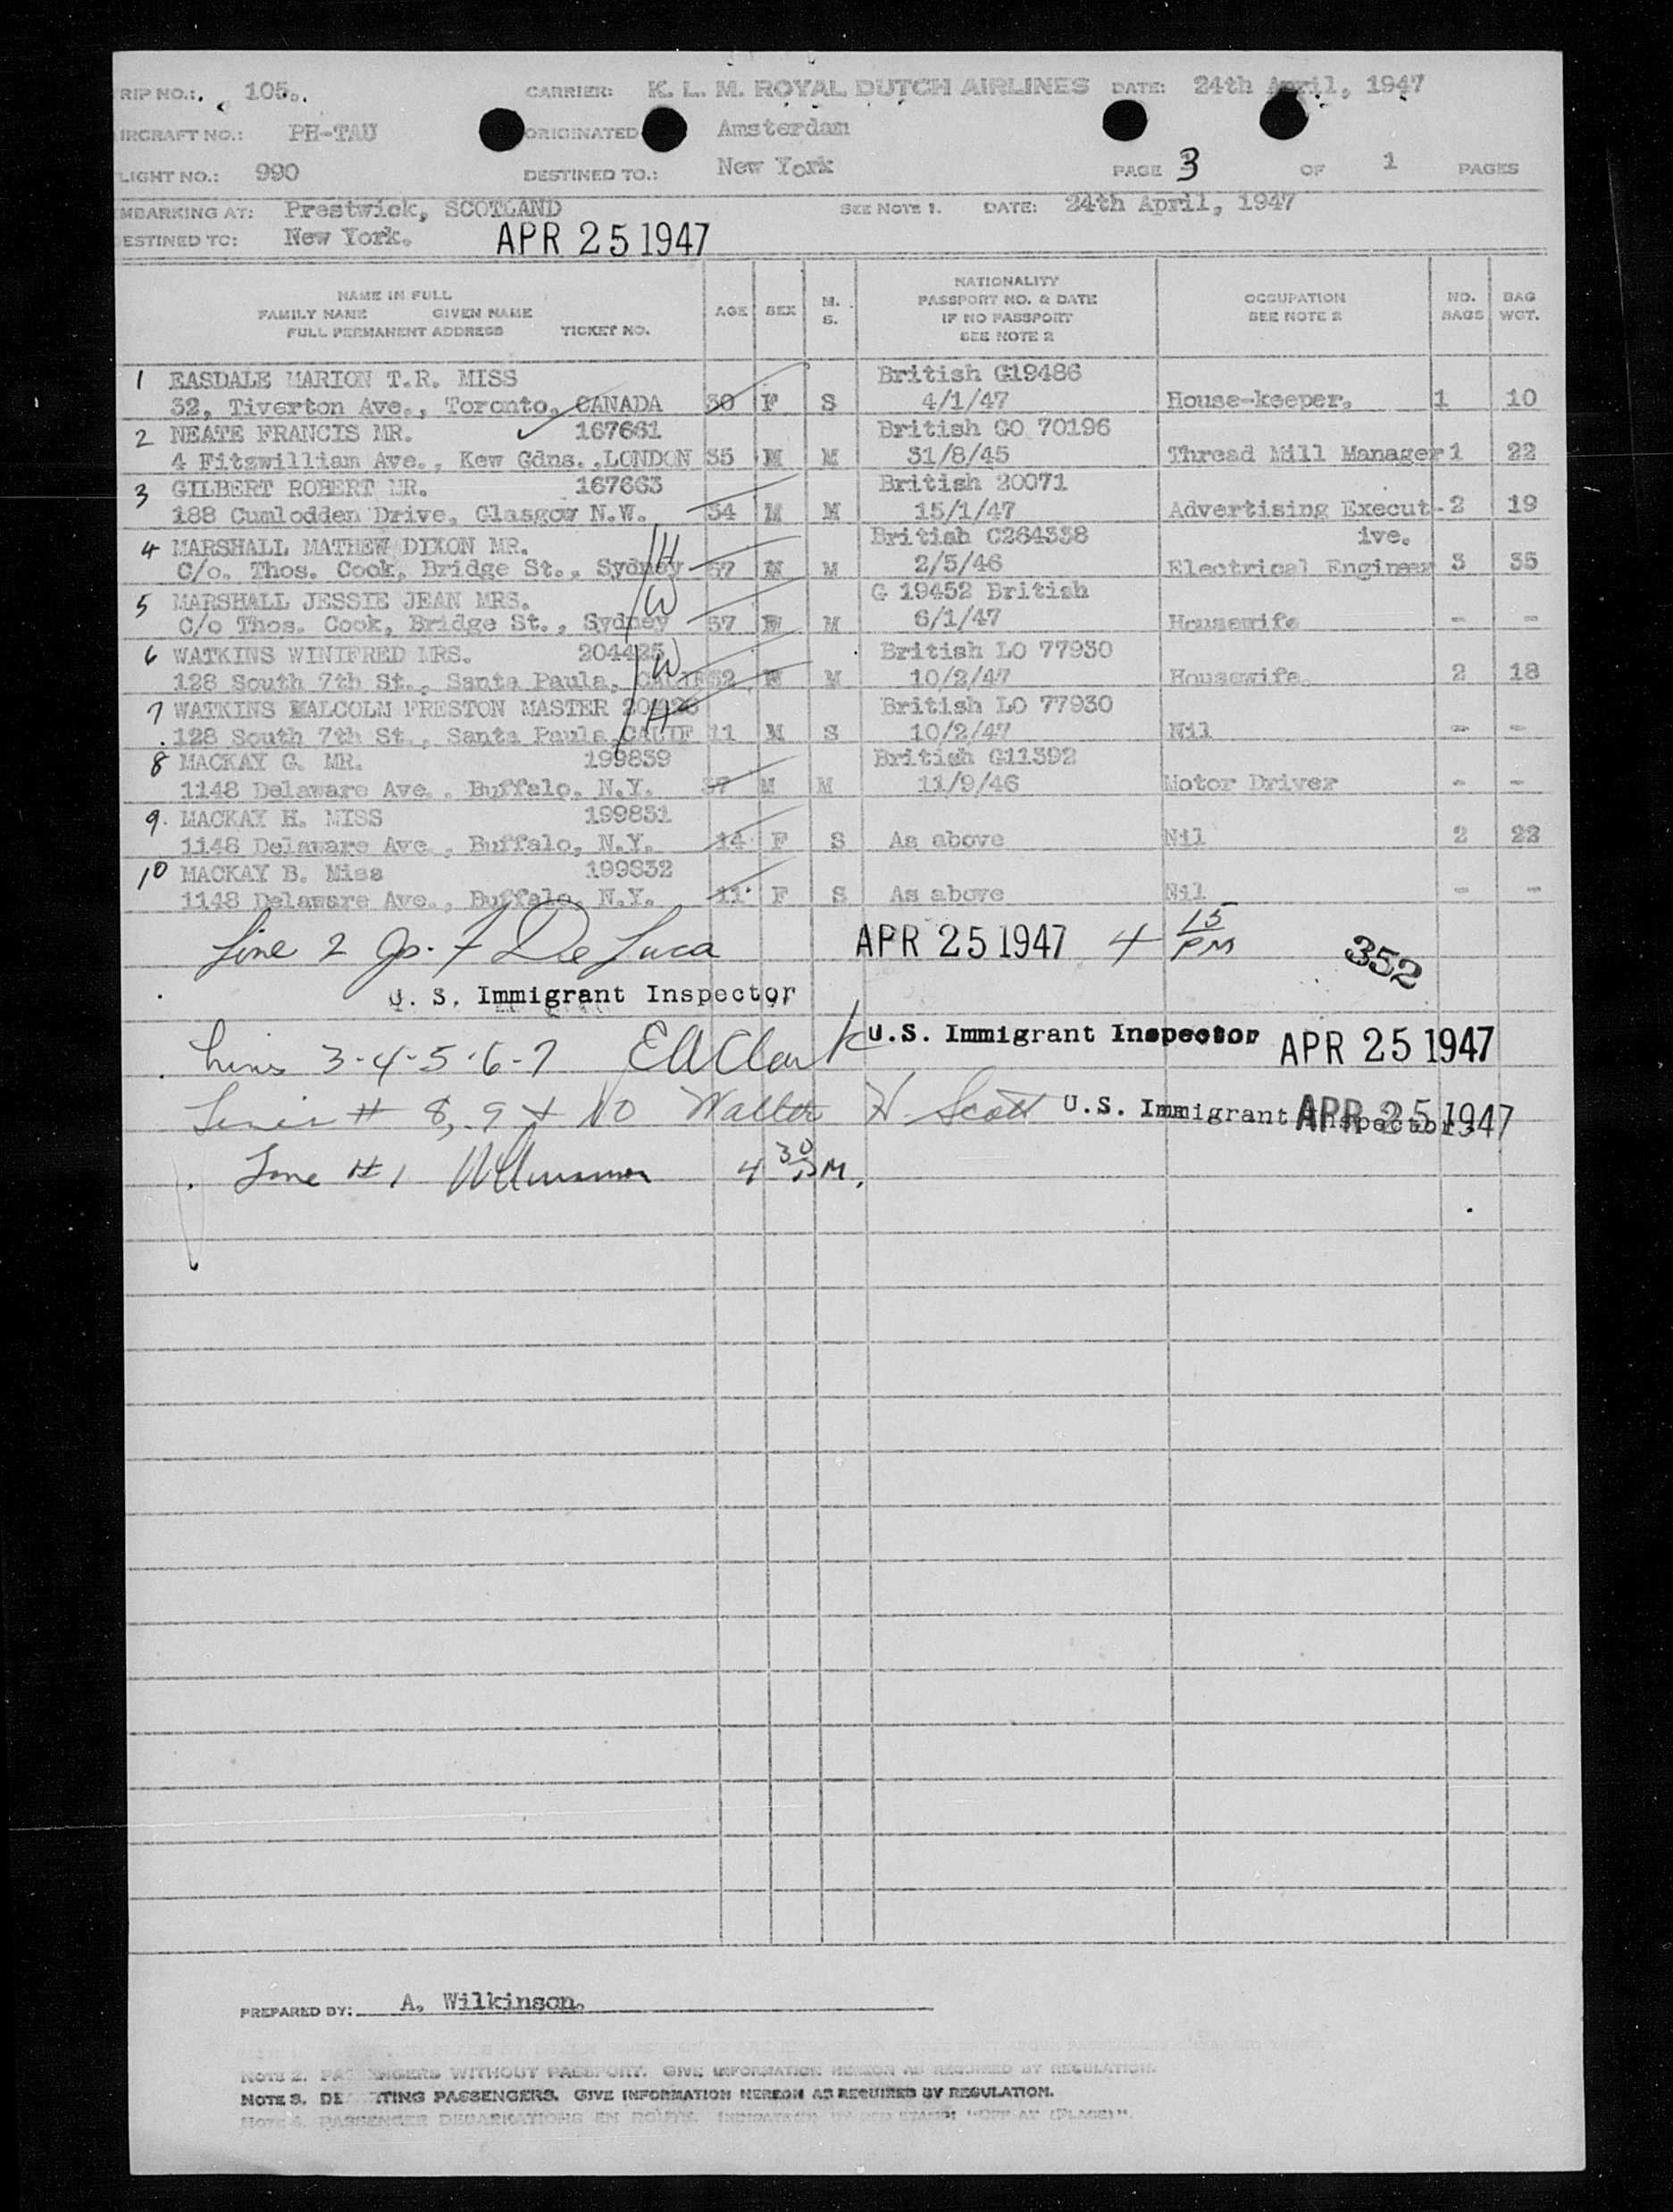 RIP NO.: 105. CARRIER: K. L. M. ROYAL DUTCH AIRLINES DATE: 24th April, 1947
IRCRAFT NO.: PH-TAU ORIGINATED Amsterdam
LIGHT NO.: 990 DESTINED TO.: New York PAGE 3 OF 1 PAGES
MBARKING AT: Prestwick, SCOTLAND SEE NOTE 1. DATE: 24th April, 1947
ESTINED TO: New York. APR 25 1947
NAME IN FULL
FAMILY NAME GIVEN NAME
FULL PERMANENT ADDRESS TICKET NO.
AGE SEX M. S.
NATIONALITY
PASSPORT NO. & DATE
IF NO PASSPORT
SEE NOTE 2
OCCUPATION
SEE NOTE 2
NO. BAGS
BAG WGT.
1 EASDALE MARION T.R. MISS British G19486
32, Tiverton Ave., Toronto, CANADA 30 F S 4/1/47 House-keeper. 1 10
2 NEATE FRANCIS MR. 167661 British GO 70196
4 Fitzwilliam Ave., Kew Gdns.,LONDON 35 M M 31/8/45 Thread Mill Manager 1 22
3 GILBERT ROBERT MR. 167663 British 20071
188 Cumlodden Drive, Glasgow N.W. 34 M M 15/1/47 Advertising Execut- 2 19
4 MARSHALL MATHEW DIXON MR. British C264338 ive.
C/o. Thos. Cook, Bridge St., Sydney H 57 M M 2/5/46 Electrical Engineer 3 35
5 MARSHALL JESSIE JEAN MRS. G 19452 British
C/o Thos. Cook, Bridge St., Sydney W 57 F M 6/1/47 Housewife - -
6 WATKINS WINIFRED MRS. 204425 British LO 77930
128 South 7th St., Santa Paula, CALIF W 52 F M 10/2/47 Housewife. 2 18
7 WATKINS MALCOLM PRESTON MASTER 204426 British LO 77930
128 South 7th St., Santa Paula,CALIF H 11 M S 10/2/47 Nil - -
8 MACKAY G. MR. 199839 British G11392
1148 Delaware Ave., Buffalo, N.Y. 37 M M 11/9/46 Motor Driver - -
9. MACKAY H. MISS 199831
1148 Delaware Ave., Buffalo, N.Y. 14 F S As above Nil 2 22
10 MACKAY B. Miss 199832
1148 Delaware Ave., Buffalo, N.Y. 11 F S As above Nil - -
Line 2 Jos. F De Luca APR 25 1947 4 15 PM 352
U. S. Immigrant Inspector
Lines 3-4-5-6-7 EAClark U.S. Immigrant Inspector APR 25 1947
Lines # 8, 9 + 10 Walter H. Scott U.S. Immigrant Inspector APR 25 1947
Line #1 4 30 PM.
PREPARED BY: A. Wilkinson.
NOTE 2. PASSENGERS WITHOUT PASSPORT. GIVE INFORMATION HEREON AS REQUIRED BY REGULATION.
NOTE 3. DE TING PASSENGERS. GIVE INFORMATION HEREON AS REQUIRED BY REGULATION.
NOTE 4. PASSENGER DEBARKATIONS EN ROUTE. INDICATE BY RED STAMP "OFF AT (PLACE)".